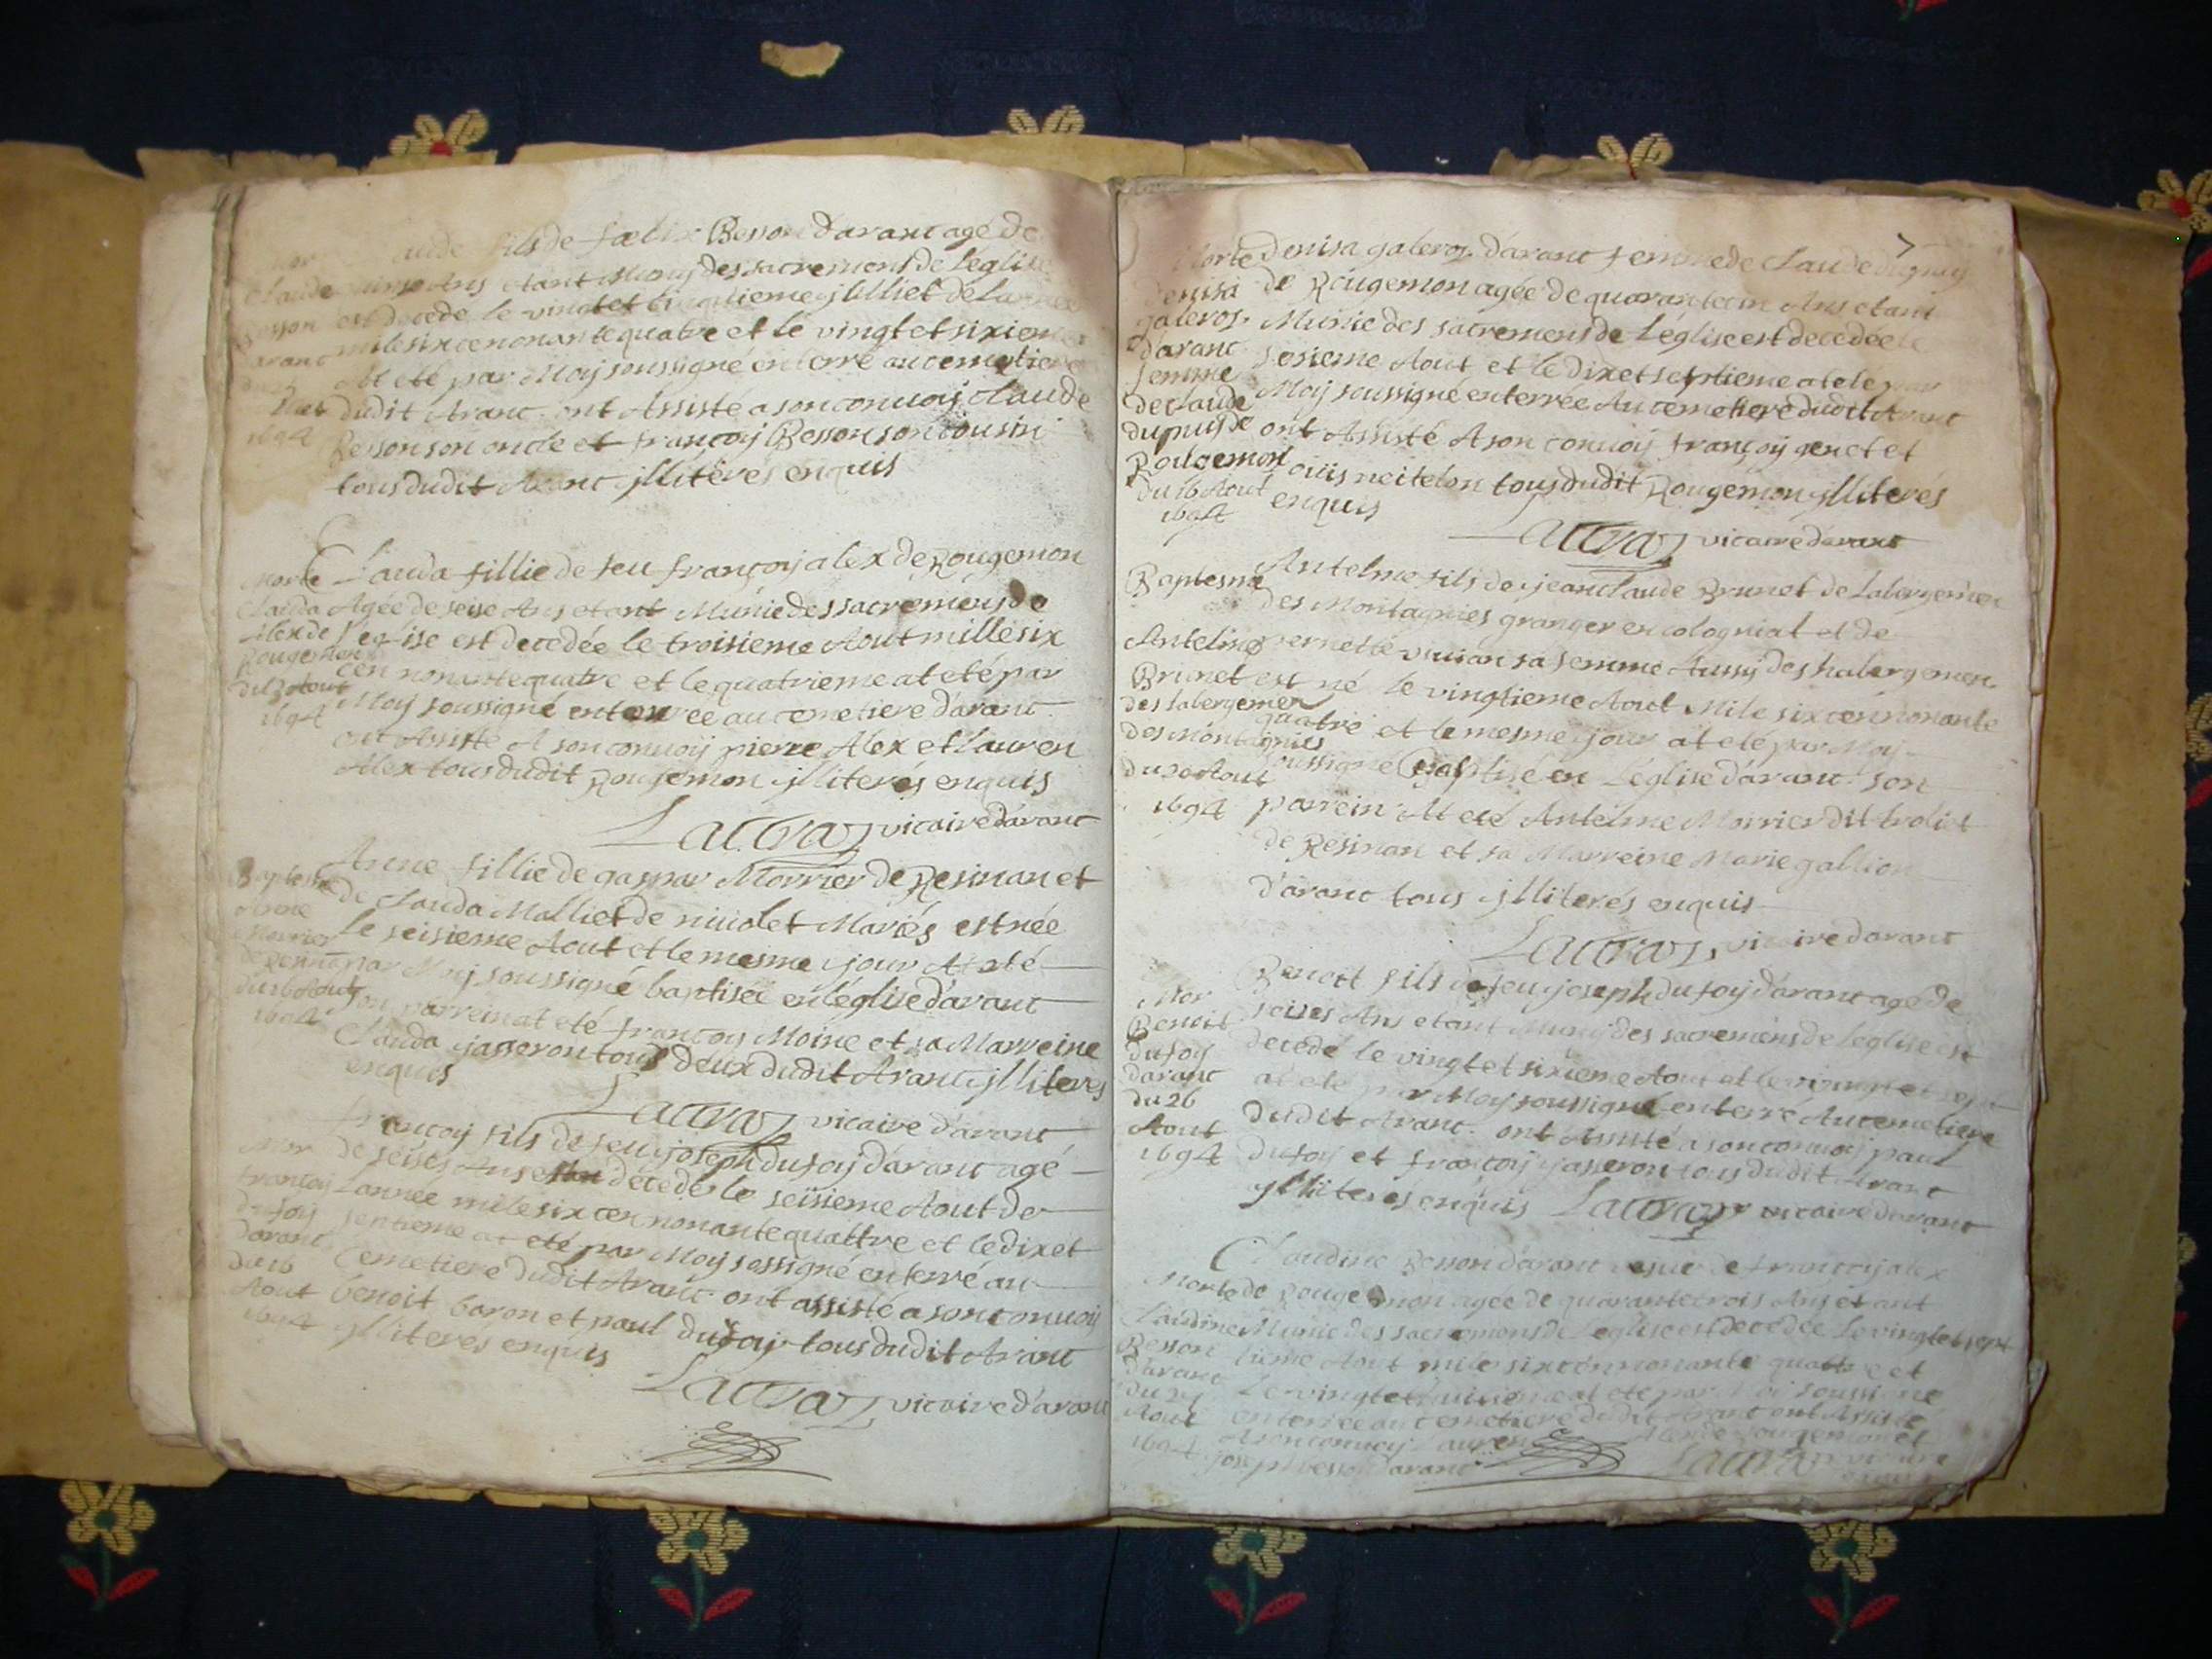 fils de fœlix Besson d'aranc agé de
ans etant Muny des sacremens de l'églis
est decede le vingt et cinquieme jllliet de
mile six cen nonante quatre et le vingt et sixiem
At eté par Moy soussigné enterré au cemetiere
dudit Aranc ont Assisté a son conuoij Claude
Besson son oncle et françoij Besson son cousin
tous dudit Aranc jlliterés enquis
Claude
Besson
1694
Clauda fillie de feu françoij alex de Rougemon
Agée de seise Ans etant Munie des sacremens de
l'eglise est decedée le troisieme Aout mille six
cen nonante quatre et le quatrieme at eté par
Moij soussigné enterrée au cemetiere d'aranc
ont Assisté A son conuoij pierre Alex et lauren
Alex tous dudit Rougemon jlliterés enquis
Lacraz vicaire d'aranc
Morte
Clauda
Alex de
Rougemon
du 3 Aout
1694
Anne fillie de gaspar Morrier de Resinan et
de Clauda Malliet de niuolet Mariés est née
le seisieme Aout et le mesme jour At eté
par Moij soussigné baptiseé en l'église d'aranc
son parrein at eté françoij Moine et sa Marreine
Clauda jasseron tous deux dudit Aranc jlliterés
enquis
Lacraz vicaire d'aranc
Baptesme
Anne
Morrier
du 16 Aout
1694
françoij fils de feu joseph dufoij d'aranc agé
de seises Ans decedé le seisieme Aout de
l'année mile six cen nonante quattre et le dix et
septieme at eté par Moij sossigné enterré au
Cemetiere dudit Aranc ont assisté a son conuoij
benoit baron et paul dufoij tous dudit Aranc
jlliteres enquis
Lacraz vicaire d'aranc
Mor
françoij
dufoij
d'aranc
du 16
Aout
1694
7
Denisa galeroz d'aranc femme de Claude dupuij
de Rougemon agée de quarante cin Ans etant
Munie des sacremens de l'église est decedée le
sesieme Aout et le dix et septieme at eté par
Moij soussigné enterrée Au cemetiere dudit Aranc
ont Assisté A son conuoij françoij genet et
tous dudit Rougemon jlliterés
enquis
Lacraz vicaire d'aranc
Morte
denisa
galeroz
d'aranc
femme
de Claude
dupuis de
Rougemon
du 16 Aout
1694
Antelme fils de jean claude Brunet de l'abergemen
des Montagnies granger en colognat et de
pernette sa femme Aussy des habergemen
est né le vingtieme Aout Mile six cen nonante
quatre et le mesme jour at eté par Moij
soussigné Baptisé en l'église d'aranc son
parrein At eté Antelme Morrier dit trolit
de Resinan et sa Marreine Marie gallion
d'aranc tous jlliterés enquis
Lacraz vicaire d'aranc
Baptesme
Antelme
Brunet
des labergemen
des Montagnies
du 20 Aout
1694
Benoit fils de feu joseph dufoij d'aranc agé de
seises Ans etant Muni des sacremens de l'eglise est
decedé le vingt et sixieme Aout et le vingt et
at eté par Moij soussigné enterré Au cemetiere
dudit Aranc ont Assisté a son conuoij paul
dufoij et françoij jasseron tous dudit Aranc
jlliterés enquis Lacraz vicaire d'aranc
Mor
Benoit
dufoij
d'aranc
du 26
Aout
1694
Claudine Besson d'aranc françoij alex
de Rougemon agée de quarante trois Ans etant
Munie des sacremens de l'eglise est decedée le vingt et sept
tieme Aout mile six cen nonante quattre et
le vingt et huitieme at eté par Moi soussigné
enterrée au cemetiere dudit Aranc ont Assisté
A son conuoij lauren Alex de Rougemon et
joseph besson d'aranc Lacraz vicaire
Morte
Claudine
Besson
d'aranc
du 27
Aout
1694